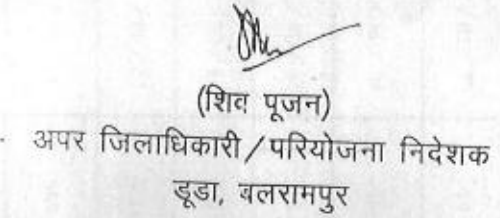 (शिव पूजन)
अपर जिलाधिकारी/परियोजना निदेशक
डूडा, बलरामपुर